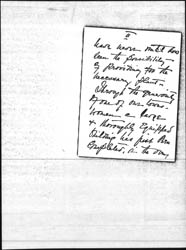 2
have never until now
been the possibility
of providing for the
necessary plant.
Through the generosity
of one of our towns
women a large
& thoroughly equipped
building has just been
completed, in the